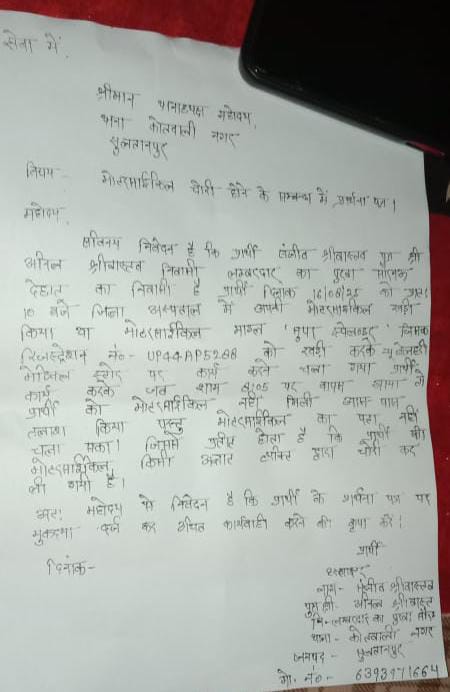 सेवा में,
श्रीमान थानाध्यक्ष महोदय,
थाना कोतवाली नगर
सुलतानपुर
विषय - मोटरसाईकिल चोरी होने के सम्बन्ध में प्रार्थना पत्र।
महोदय,
सविनय निवेदन है कि प्रार्थी श्रीवास्तव पुत्र श्री
अनिल श्रीवास्तव निवासी लम्बरदार का पुरवा
देहात का निवासी है प्रार्थी दिनांक 16/08/25 को प्रातः
10 बजे जिला अस्पताल में अपनी मोटरसाईकिल खड़ी
किया था मोटरसाईकिल माडल "सुपर स्पेलन्डर" जिसका
रजिस्ट्रेशन नं०- UP44AP5288 को खड़ी करके न्यू
मेडिकल स्टोर पर कार्य करने चला गया प्रार्थी
कार्य करके जब शाम 4:05 पर वापस आया तो
प्रार्थी को मोटरसाईकिल नहीं मिली आस-पास
तलाश किया परन्तु मोटरसाईकिल का पता नहीं
चल सका। जिससे प्रतीत होता है कि प्रार्थी की
मोटरसाईकिल किसी अज्ञात व्यक्ति द्वारा चोरी कर
ली गयी है।
अतः महोदय से निवेदन है कि प्रार्थी के प्रार्थना पत्र पर
मुकदमा दर्ज कर उचित कार्यवाही करने की कृपा करें।
प्रार्थी
दिनांक-
हस्ताक्षर
नाम- श्रीवास्तव
पुत्र श्री- अनिल श्रीवास्तव
नि- लम्बरदार का पुरवा
थाना- कोतवाली नगर
जनपद- सुलतानपुर
मो. नं०- 6393971664